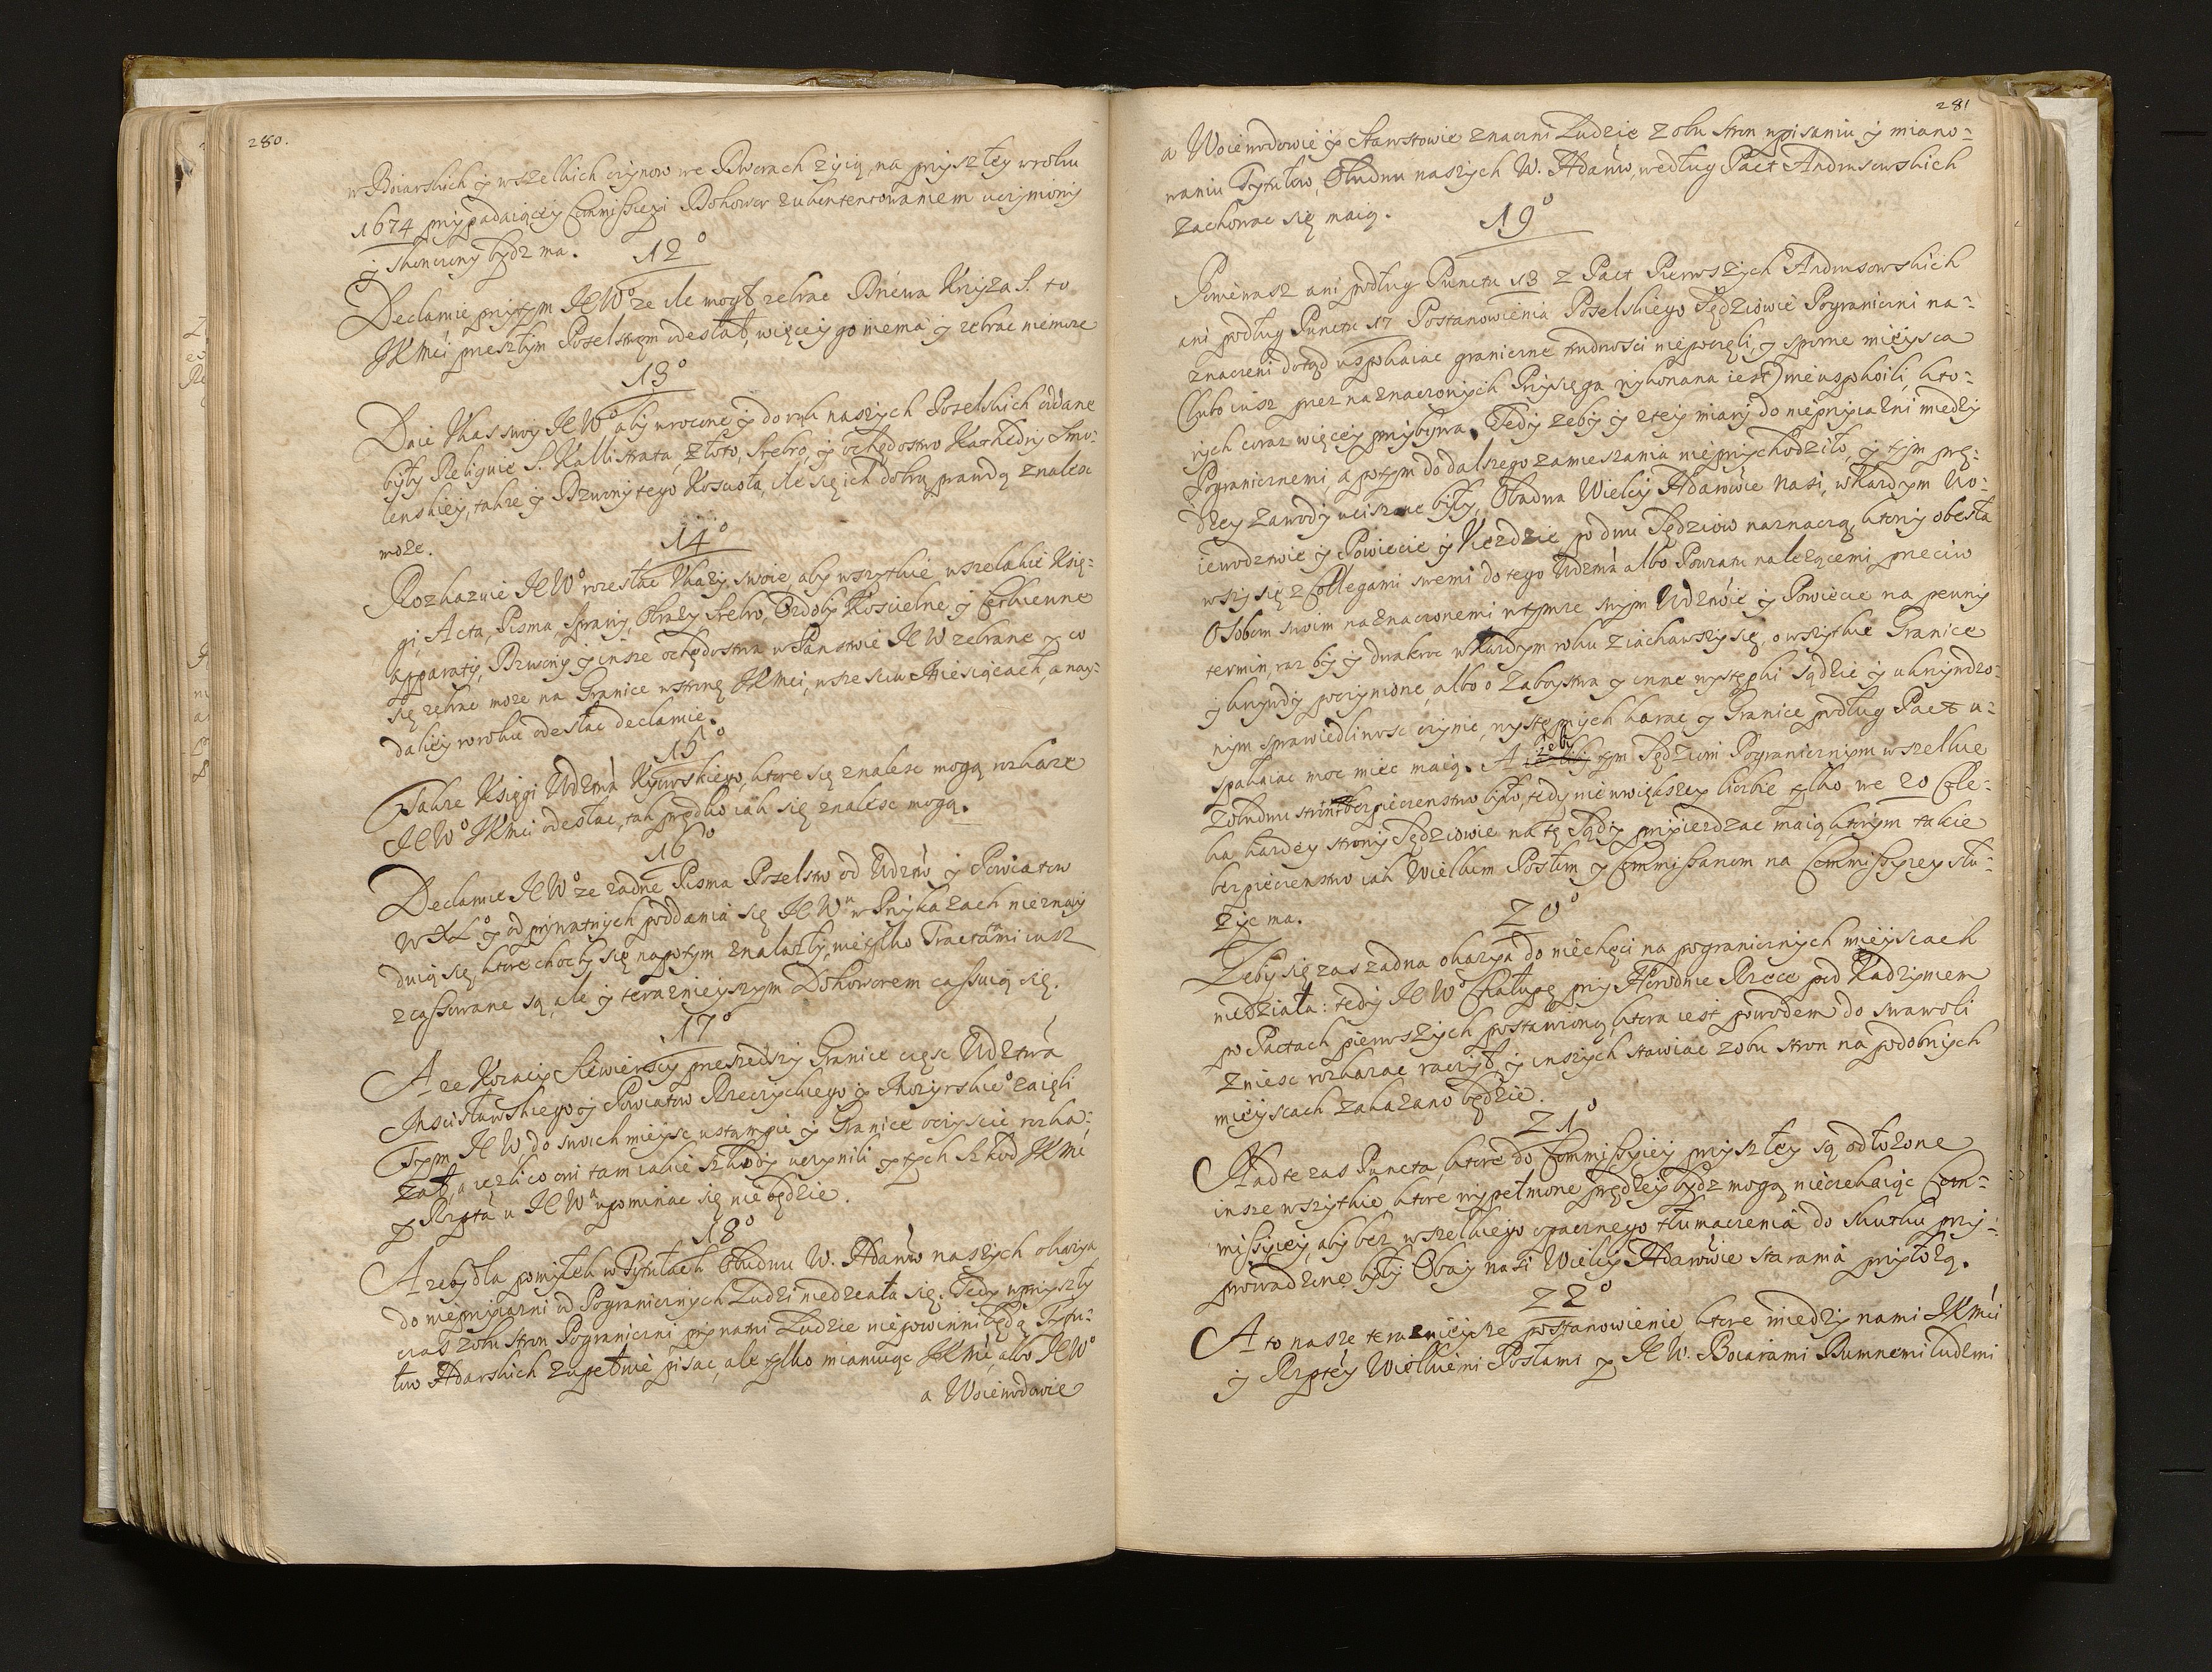 280.
w Boiarskich y wszelkich czynow we Dworach zyią, na przyszłey w roku
1674 przypadaiącey Commissiegi Dohowor z ukontentowaniem uczyniony
y skonczony bydz ma.
12º
Declaruie przytym JEWº ze ile mogł zebrac Drzewa Krzyza S. to
JKMci przeszłym Poselstwem odesłał, więcey go niema y zebrac niemoze
13º
Daie Ukas swoy JEWº aby wrocone y do rąk naszych Poselskich oddane
były Religuie S. Kallistrata, złoto, srebro, y ochędostwo Kathedry Smo-
lenskiey, takze y Dzwony tego Koscioła, ile się ich dobrą prawdą znalesc
moze.
14º
Rozkazuie JEWº rozesłac Ukazy swoie, aby wszytkie, wszelakie Księ-
gi, Acta, Pisma, Sprawy, Obrazy, Srebro, Ozdoby Koscielne y Cerkiewne
apparaty, Dzwony y insze ochędostwa w Panstwie JEW zebrane y co
się zebrac moze na Granice w stronę JKMci, w szesciu Miesiącach, a nay-
daliey w roku odesłac declaruie.
15º
Takze Księgi Wdztwá Kijowskiego, ktore się znalesc mogą rozkaze
JEWº JKMci odesłac, tak prędko iak się znalesc mogą.
16º
Declaruie JEWº ze zadne Pisma Poselstw od Wdztw y Powiatow
WXLº y od prywatnych poddania się JEWu w Prykazach nieznay
duią się, ktore chocby się napotym znalazły, nie tylko Tractatami iusz
zcassowane są, ale y teraznieyszym Dohoworem cassuią się.
17º
A ze Kozacy Siewierscy przeszedszy Granice częsc Wdztwá
Mscisławskiego y Powiatow Rzeczyckiego y Mozyrskieº zaięli
Tym JEW, do swoich mieysc ustąpic y Granice oczyscic rozka-
zał, a iezli co oni tam iakie szkody uczynili y tych szkod JKMc
y Rzptá u JEWª upominac się nie będzie.
18º
A zeby dla pomyłek w Tytułach Obudwu W. Hdarów naszych okazya
do nieprzyiazni od Pogranicznych Ludzi niedzeała się. Tedy w przyszły
czas z obu stron Pograniczni prywatni Ludzie nie powinni będą Tytu-
łow Hdarskich zupełnie pisac, ale tylko mianuiąc JKMc, albo JEWº
a Woiewodowie
281
a Woiewodowie y Starostowie znaczni Ludzie z obu stron w pisaniu y miano-
waniu Tytułow, Obudwu naszych W. Hdarów, według Pact Andruszowskich
zachowac się maią.
19º
Poniewasz ani podług Punctu 13 z Pact Pierwszych Andruszowskich
ani podług Punctu 17 Postanowienia Poselskiego Sędziowie Pograniczni na-
znaczeni dotąd uspokaiac graniczne trudnosci niepoczęli, y sporne mieysca
(lubo iusz przez naznaczonych Przysięga wykonana iest) nieuspokoili, kto-
rych coraz więcey przybywa. Tedy zeby y z tey miary do nieprzyiazni między
Pogranicznemi, a potym do dalszego zamieszania nieprzychodziło, y tym prę-
dzey zawody uciszone były, Obadwa Wielcy Hdarowie Nasi, w kazdym Wo-
iewodztwie y Powiecie y Uiezdzie po dwu Sędziow naznaczą, ktorzy obesła
wszy się z Collegami swemi do tego Wdztwá albo Powiatu nalezącemi przeciw
Osobom swoim naznaczonemi w tymze swym Wdztwie y Powiecie na pewny
termin, raz by y dwakroc w kazdym roku ziachawszy się, o wszytkie Granice
y krzywdy poczynione, albo o Zaboystwa y inne występki sądzic y ukrzywdzo-
nym sprawiedliwosc czynic, występnych karac y Granice podług Pact u-
spakaiac moc miec maią. A zeby tym Sędziom Pogranicznym wszelkie
z obudwu stron bezpieczenstwo było, tedy nie w większey liczbie tylko we 20 Czło-
ka kazdey strony Sędziowie na tę Sądy przyiezdzac maią, ktorym takie
bezpieczenstwo iak Wielkim Posłom y Commissarzom na Commissyey słu-
zyc ma.
20º
Zeby się zas zadna okazya do niechęci na pogranicznych mieyscach
niedziała: tedy JEWº Chałupę przy Horodnie Rzece pod Kadzynem
po Pactach pierwszych postawioną, ktora iest powodem do swawoli
zniesc rozkazac raczył y inszych stawiac z obu stron na podobnych
mieyscach zakazano będzie.
21º
Nad te zas Puncta, ktore do Commissyiey przyszłey są odłozone
insze wszytkie, ktore wypełnione prędzey bydz mogą nieczekaiąc Com-
missyiey, aby bez wszelkiego opacznego tłumaczenia do skutku przy-
prowadzone były Obay nasi Wielcy Hdarowie starania przyłozą.
22º
A to nasze teraznieysze postanowienie, ktore między nami JKMci
y Rzptey Wielkiemi Posłami y JEW. Boiarami Dumnemi Ludzmi